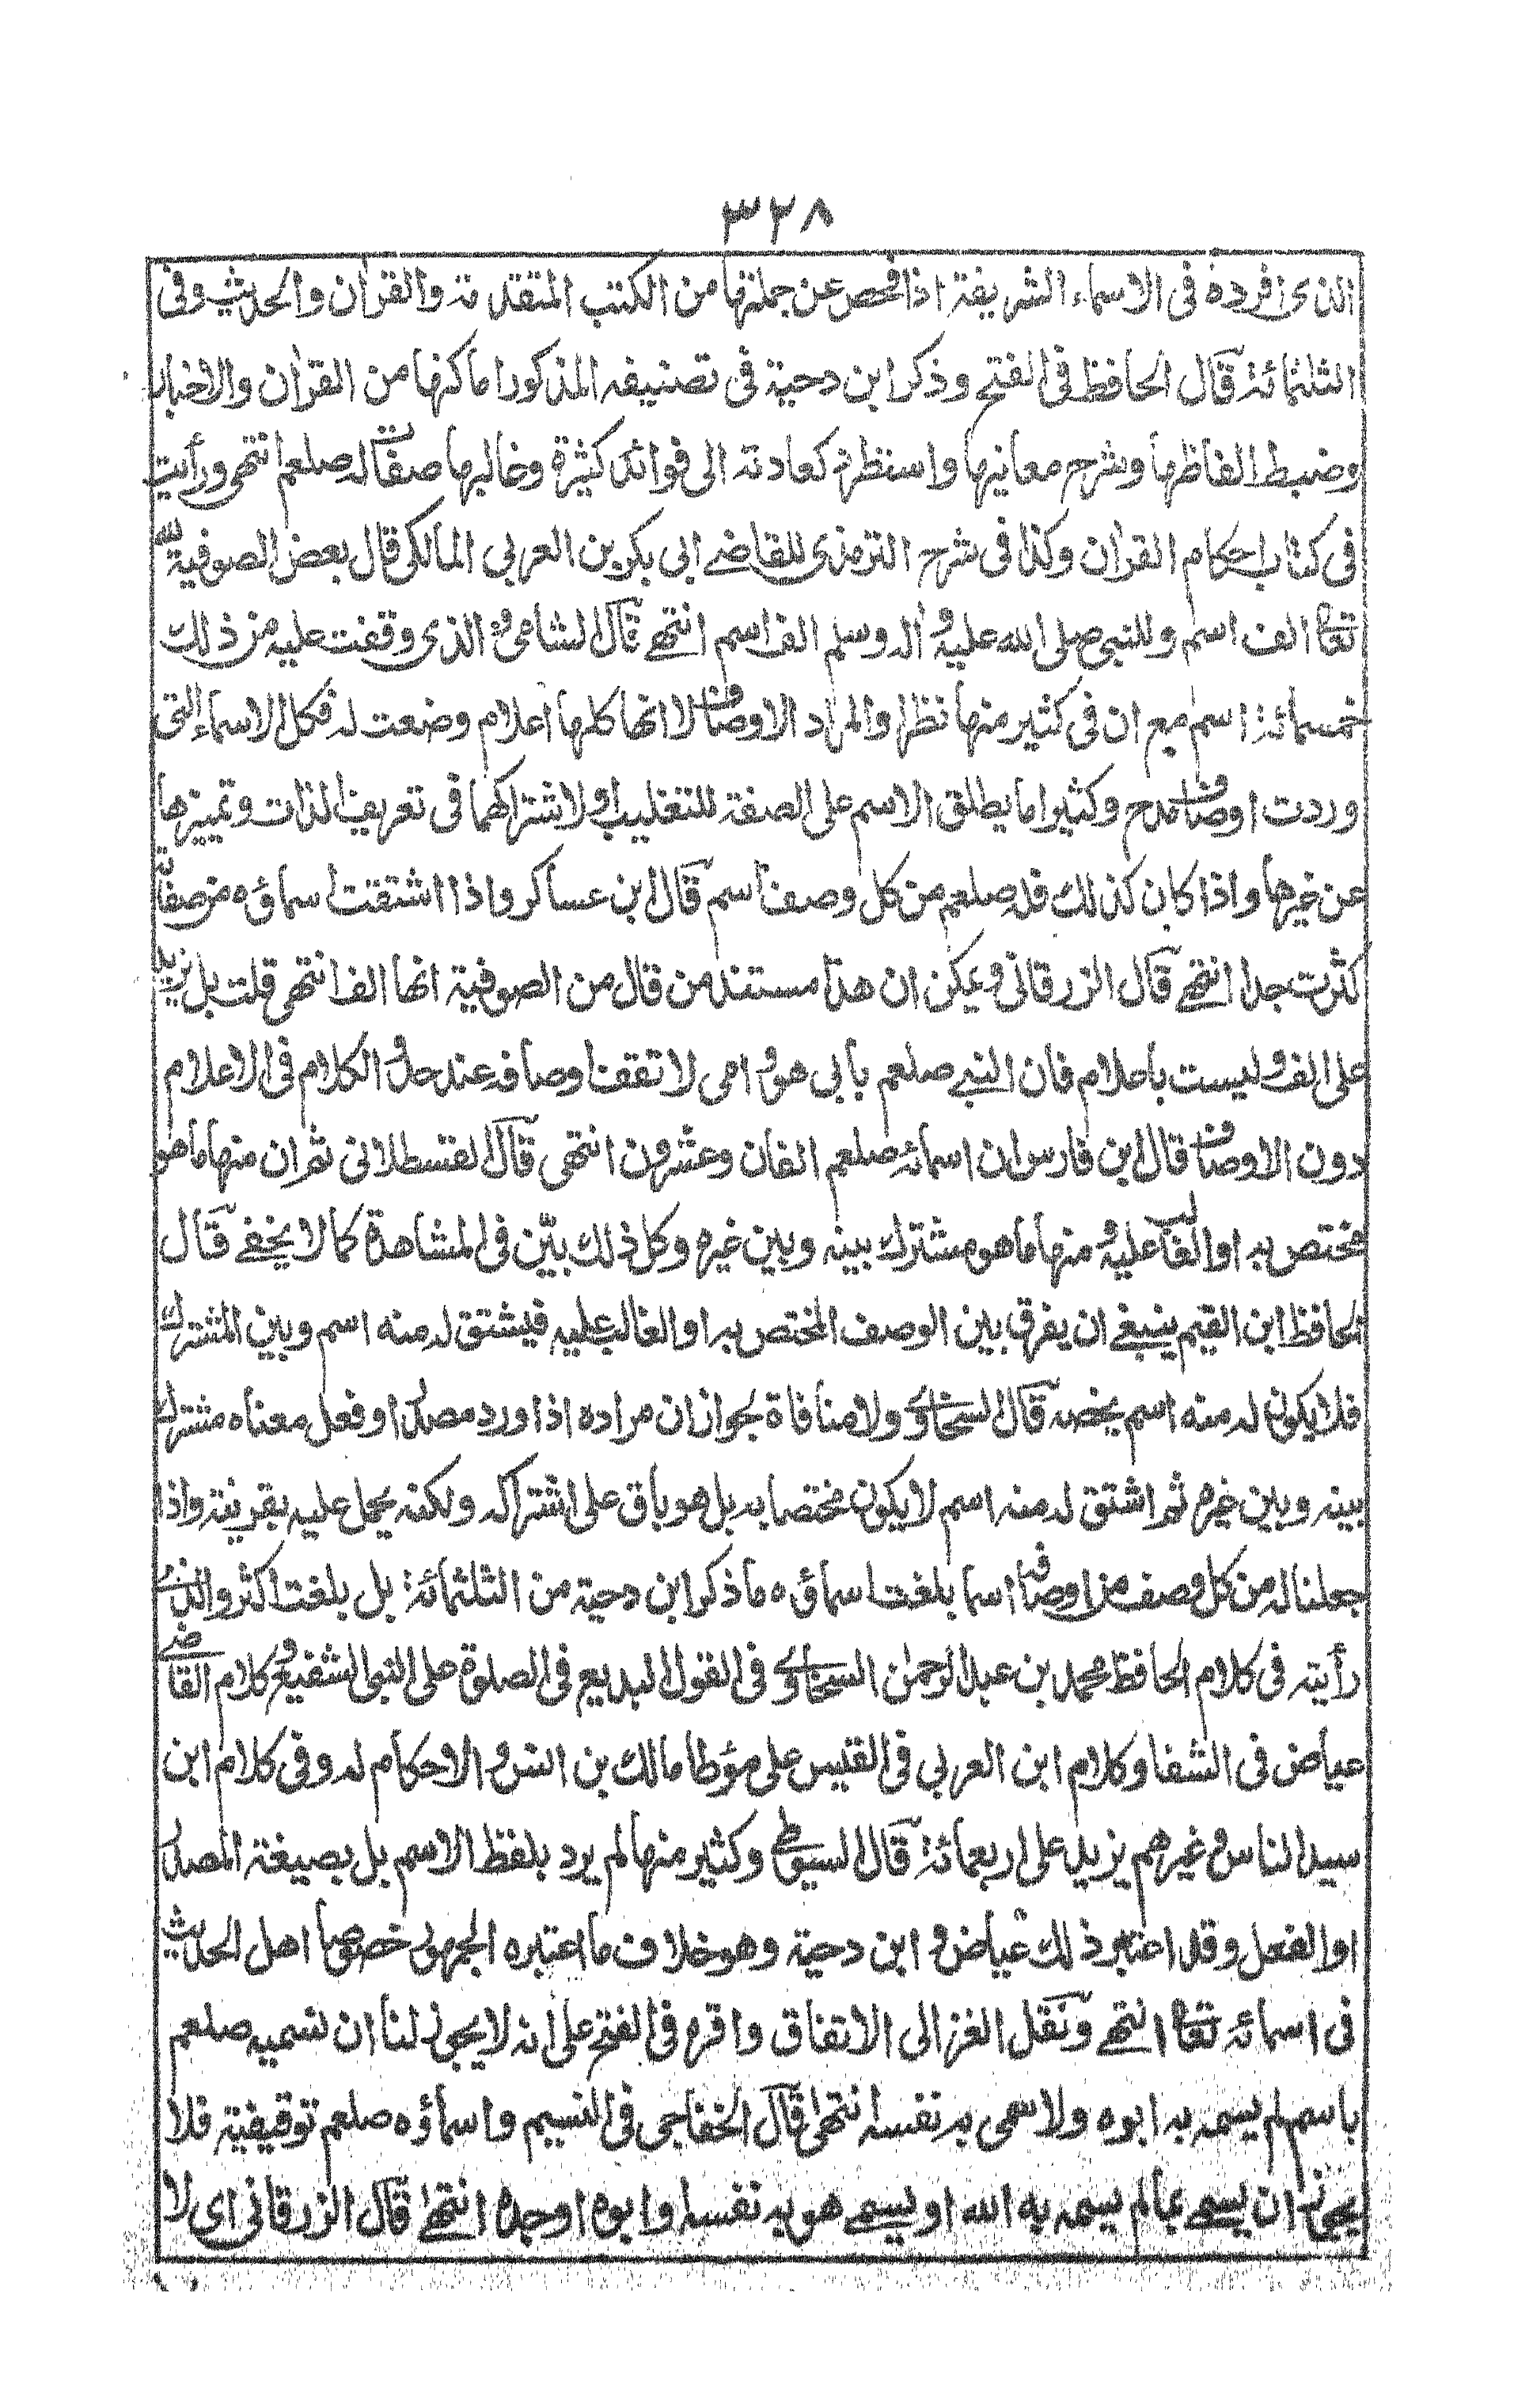 ٣٢٨
الذى افرده فى الاسماء الشريفة اذا فحص عن جملتها من الكتب المتقدمة والقران والحديث وفى
الثلثمائة قال الحافظ فى الفتح وذكر ابن دحية فى تصنيفه المذكور اماكنها من القران والاخبار
وضبط الفاظها وشرح معانيها واستطرد كعادته الى فوائد كثيرة وغالبها صفات له صلعم انتهى ورأيت
فى كتاب احكام القران وكذا فى شرح الترمذى للقاضى ابى بكر بن العربى المالكى قال بعض الصوفية لله
تعالى الف اسم وللنبى صلى الله عليه واله وسلم الف اسم انتهى قال الشامى والذى وقفت عليه من ذلك
خمسمائة اسم مع ان فى كثير منها نظرا والمراد الاوصاف لا انها كلها اعلام وضعت له فكل الاسماء التى
وردت اوصاف مدح وكثيرا ما يطلق الاسم على الصفة للتغليب او لاشتراكهما فى تعريف الذات وتميزها
عن غيرها واذا كان كذلك فله صلعم من كل وصف اسم قال ابن عساكر واذا اشتقت اسماؤه من صفاته
كثرت جدا انتهى قال الزرقانى ويمكن ان هذا مستند من قال من الصوفية انها الفا انتهى قلت بل تزيد
على الف وليست باعلام فان النبى صلعم بابى هو وامى لا تقف اوصافه عند حد والكلام فى الاعلام
دون الاوصاف قال ابن فارس ان اسمائه صلعم الفان وعشرون انتهى قال القسطلانى ثم ان منها ما هو
مختص به او الغالب عليه ومنها ما هو مشترك بينه وبين غيره وكل ذلك بيّن فى المشاهدة كما لا يخفى قال
الحافظ ابن القيم ينبغى ان يفرق بين الوصف المختص به او الغالب عليه فيشتق له منه اسم وبين المشترك
فلا يكون له منه اسم يخصه قال السخاوى ولا منافاة لجواز ان مراده اذا ورد مصدر او فعل معناه مشترك
بينه وبين غيره ثم اشتق له منه اسم لا يكون مختصا به بل هو باق على اشتراكه ولكنه يحمل عليه بقرينة واذا
جعلنا له من كل وصف من اوصافه اسما بلغت اسماؤه ما ذكر ابن دحية من الثلثمائة بل بلغت اكثر والذى
رأيته فى كلام الحافظ محمد بن عبد الرحمن السخاوى فى القول البديع فى الصلوة على النبى الشفيع وكلام القاضى
عياض فى الشفا وكلام ابن العربى فى القبس على مؤطا مالك بن انس والاحكام له وفى كلام ابن
سيد الناس وغيرهم يزيد على اربعمائة قال السيوطى وكثير منها لم يرد بلفظ الاسم بل بصيغة المصدر
او الفعل وقد اعتبر ذلك عياض وابن دحية وهو خلاف ما اعتبره الجمهور خصوصا اهل الحديث
فى اسمائه تعالى انتهى ونقل الغزالى الاتفاق واقره فى الفتح على انه لا يجوز لنا ان نسميه صلعم
باسم لم يسمه به ابوه ولا سمى به نفسه انتهى قال الخفاجى فى النسيم واسماؤه صلعم توقيفية فلا
يجوز ان يسمى بما لم يسمه به الله او يسمى هو به نفسه او ابوه او جده انتهى قال الزرقانى اى لا